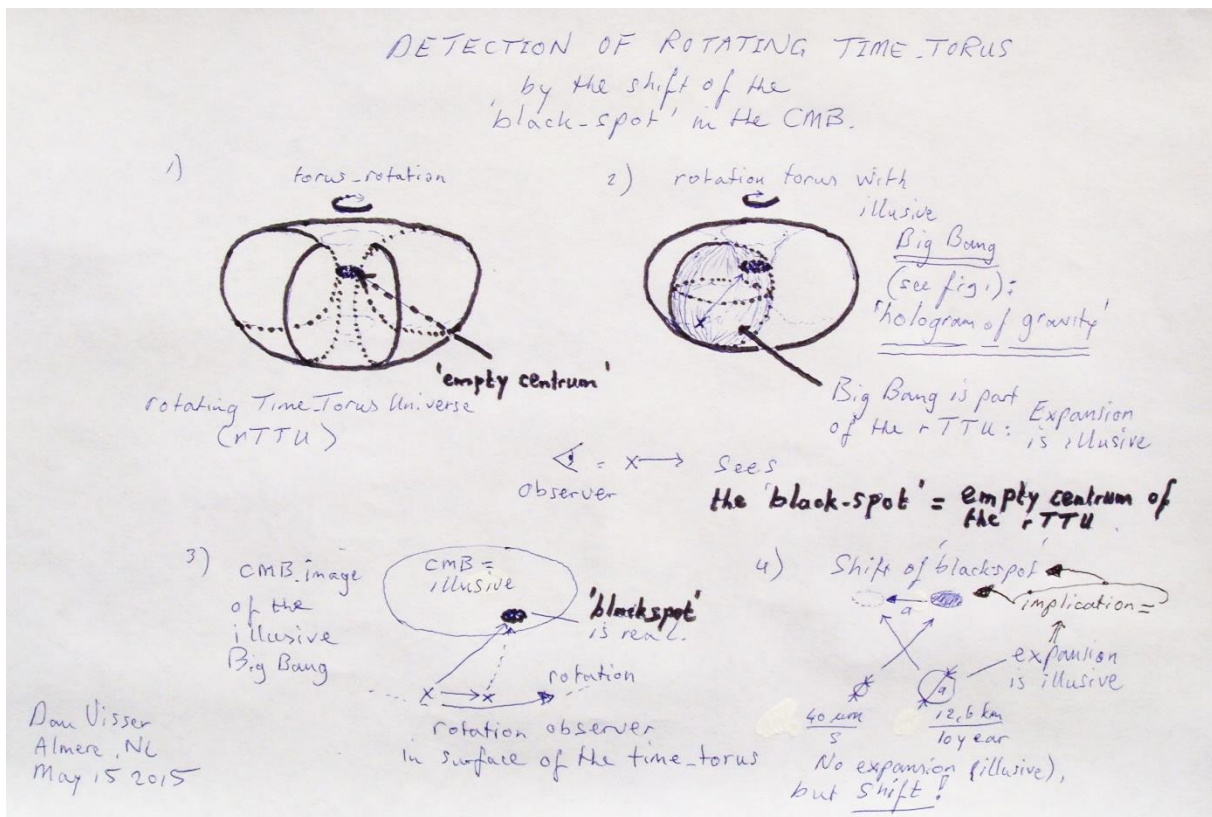 DETECTION OF ROTATING TIME-TORUS
by the shift of the
'black-spot' in the CMB.
1)
torus-rotation
'empty centrum'
rotating Time-Torus Universe
(rTTU)
2) rotation torus with
illusive
Big Bang
(see fig 1):
'hologram of gravity'
Big Bang is part
of the rTTU:
Expansion
is illusive
= x → sees
observer
the 'black-spot' = empty centrum of
the rTTU
3) CMB-image
of the
illusive
Big Bang
CMB =
illusive
'blackspot'
is real.
x x
rotation
rotation observer
in surface of the time-torus
4) Shift of 'blackspot'
a
implication =
expansion
is illusive
a
40 µm
s
12,6 km
10 year
No expansion (illusive),
but shift!
Dan Visser
Almere, NL
May 15 2015